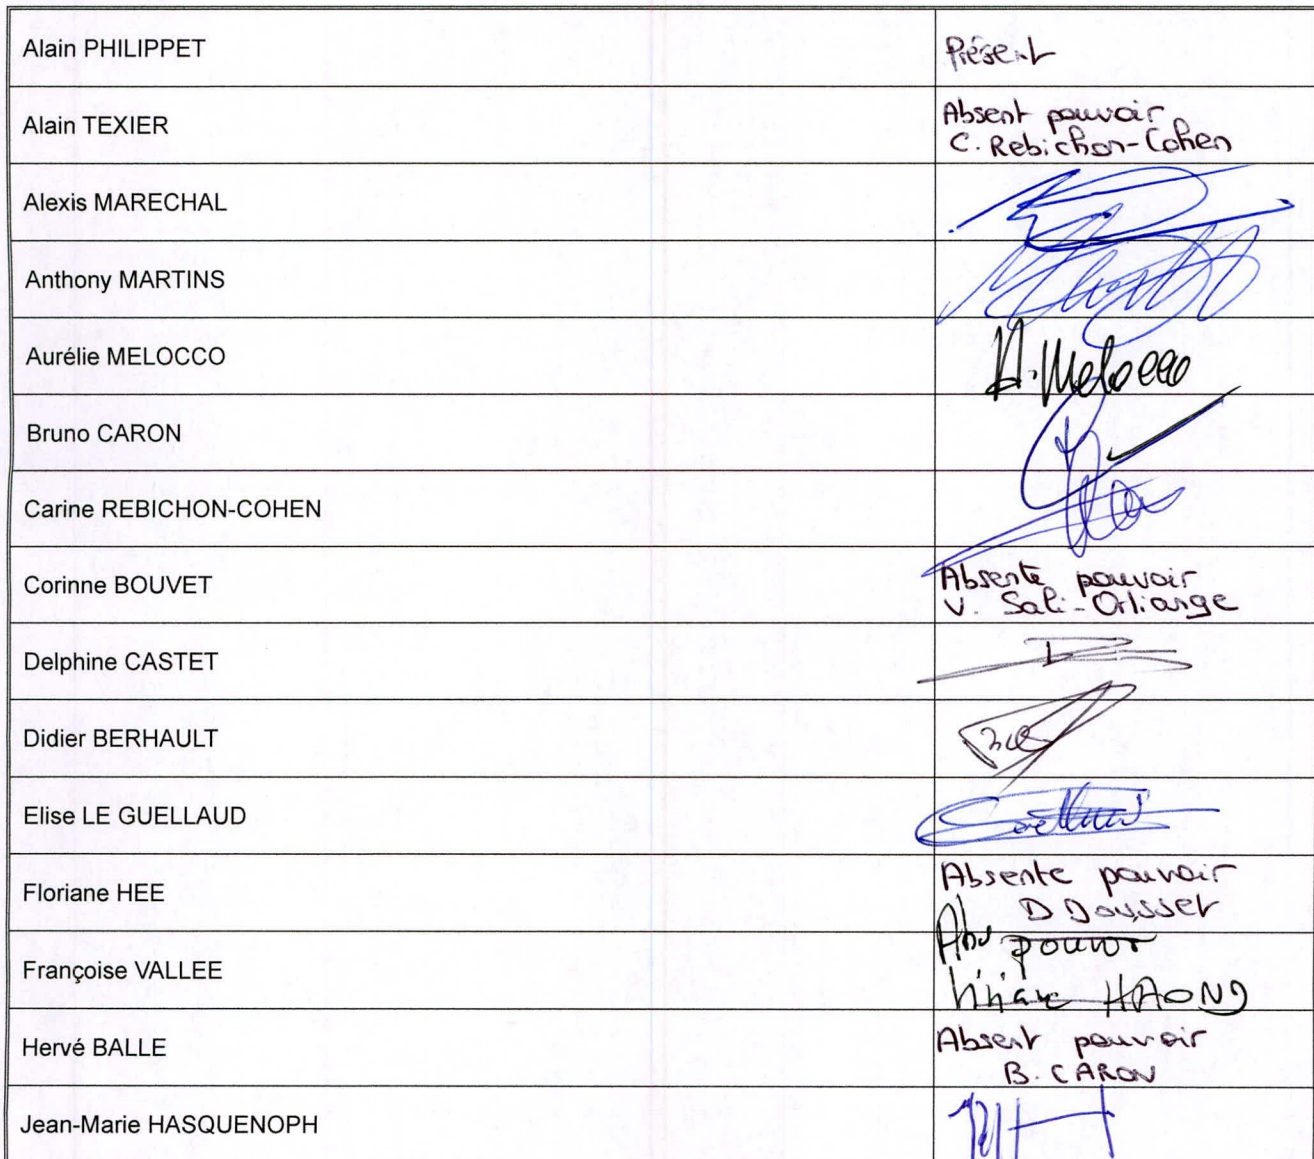 Alain PHILIPPET
Présent
Alain TEXIER
Absent pouvoir
C. Rebichon-Cohen
Alexis MARECHAL
Anthony MARTINS
Aurélie MELOCCO
A. Melocco
Bruno CARON
Carine REBICHON-COHEN
Corinne BOUVET
Absente pouvoir
V. Sali-Orliange
Delphine CASTET
Didier BERHAULT
Elise LE GUELLAUD
Floriane HEE
Absente pouvoir
D Dousset
Françoise VALLEE
Abs pouvoir
HAONG
Hervé BALLE
Absent pouvoir
B. CARON
Jean-Marie HASQUENOPH